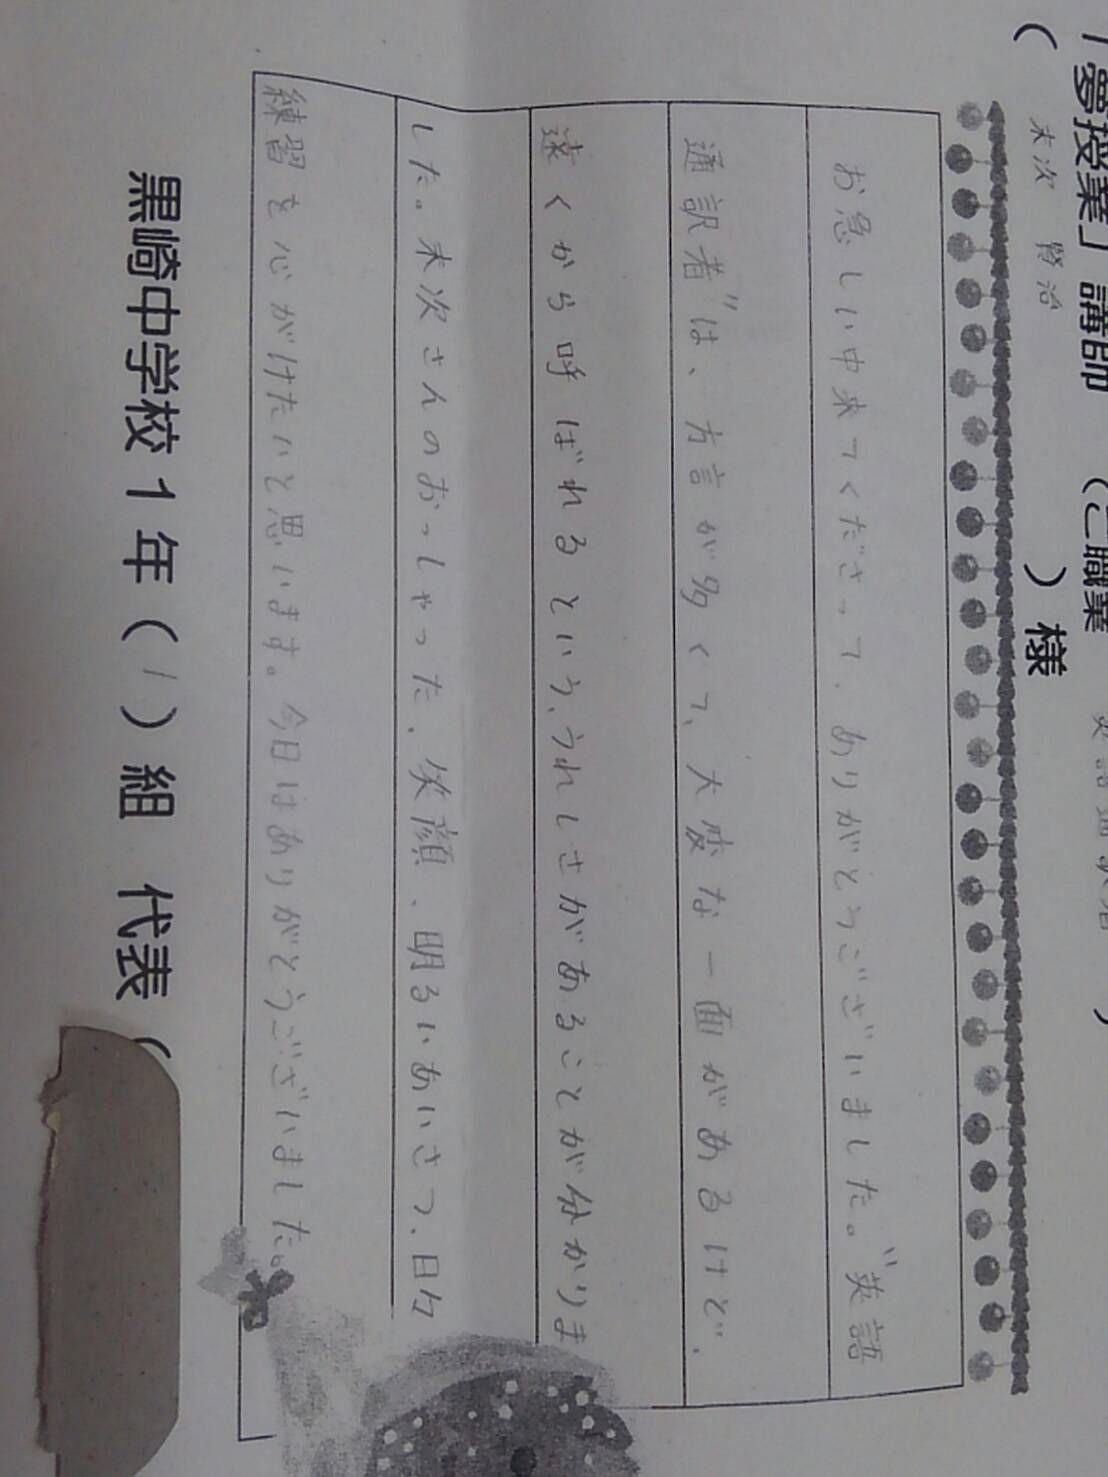 「夢授業」講師 （ご職業 英語通訳者 ）
（ 末次 賢治 ）様
お急しい中来てくださって、ありがとうございました。"英語
通訳者"は、方言が多くて、大変な一面があるけど、
遠くから呼ばれるという、うれしさがあることが分かりま
した。末次さんのおっしゃった、笑顔、明るいあいさつ、日々
練習を心がけたいと思います。今日はありがとうございました。
黒崎中学校1年（1）組 代表（